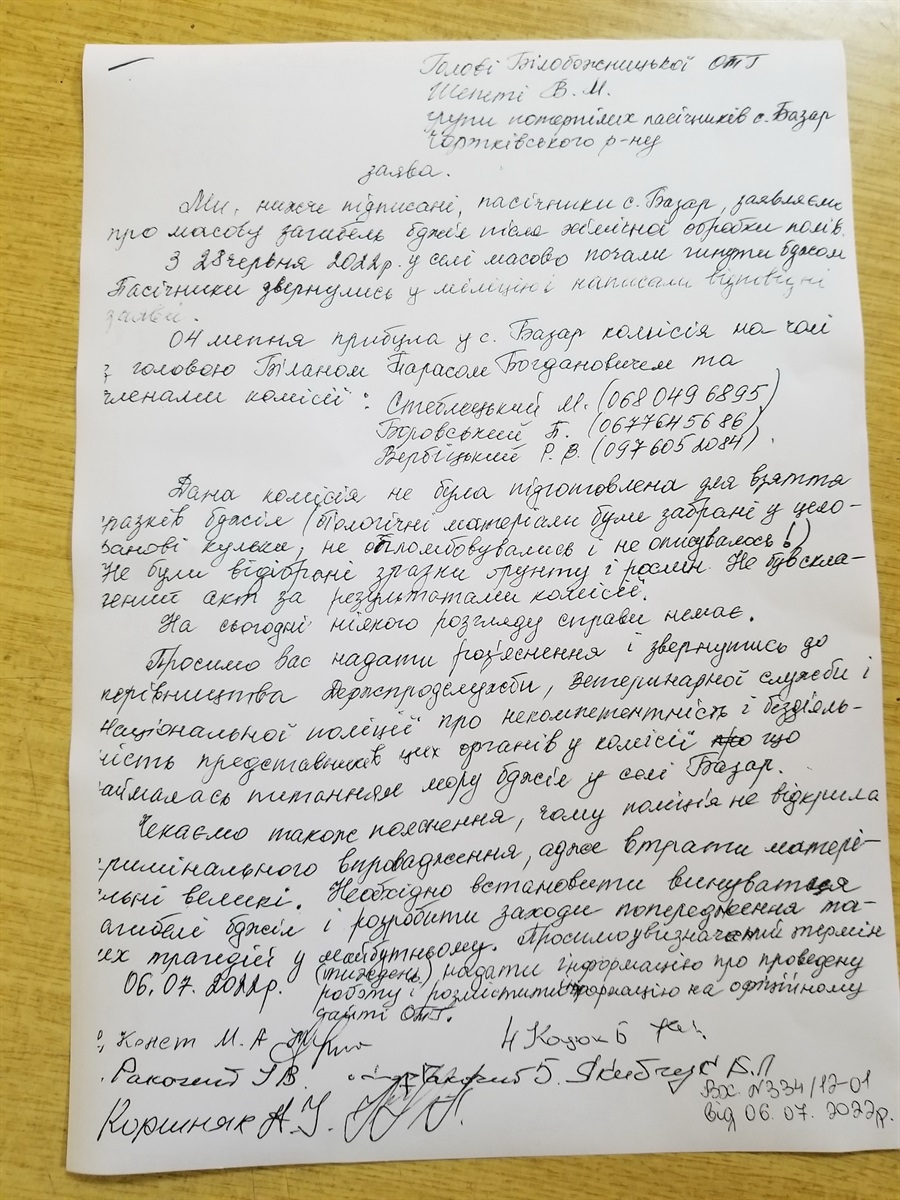 Голові Білобожницької ОТГ
Шепеті В. М.
групи потерпілих пасічників с. Базар
Чортківського р-ну
заява.
Ми, нижче підписані, пасічники с. Базар, заявляємо
про масову загибель бджіл після хімічної обробки полів.
З 28 червня 2022р. у селі масово почали гинути бджоли
Пасічники звернулись у міліцію і написали відповідні
заяви.
04 липня прибула у с. Базар комісія на чолі
з головою Біланом Тарасом Богдановичем та
членами комісії: Стеблецький М. (068 049 6895)
Боровський Б. (0677645686)
Вербіцький Р. В. (0976052084).
Дана комісія не була підготовлена для взяття
зразків бджіл (біологічні матеріали були забрані у цело-
фанові кульки, не опломбовувались і не описувалось!)
Не були відібрані зразки ґрунту і рослин. Не був скла-
дений акт за результатами комісії.
На сьогодні ніякого розгляду справи немає.
Просимо вас надати роз'яснення і звернутись до
керівництва Держпродслужби, Ветеринарної служби і
Національної поліції про некомпетентність і бездіяль-
ність представників цих органів у комісії що
займалась питанням мору бджіл у селі Базар.
Чекаємо також пояснення, чому поліція не відкрила
кримінального впровадження, адже втрати матері-
альні великі. Необхідно встановити винуватця
загибелі бджіл і розробити заходи попередження та-
ких трагедій у майбутньому. Просимо у визначений термін
06.07.2022р. (тиждень) надати інформацію про проведену
роботу і розмістити інформацію на офіційному
сайті ОТГ.
Конет М. А 4 Коцюк Б
Ракочий І В. Якибчук Б. П
Вх №334/12-01
Коршняк А. І. від 06.07.2022р.